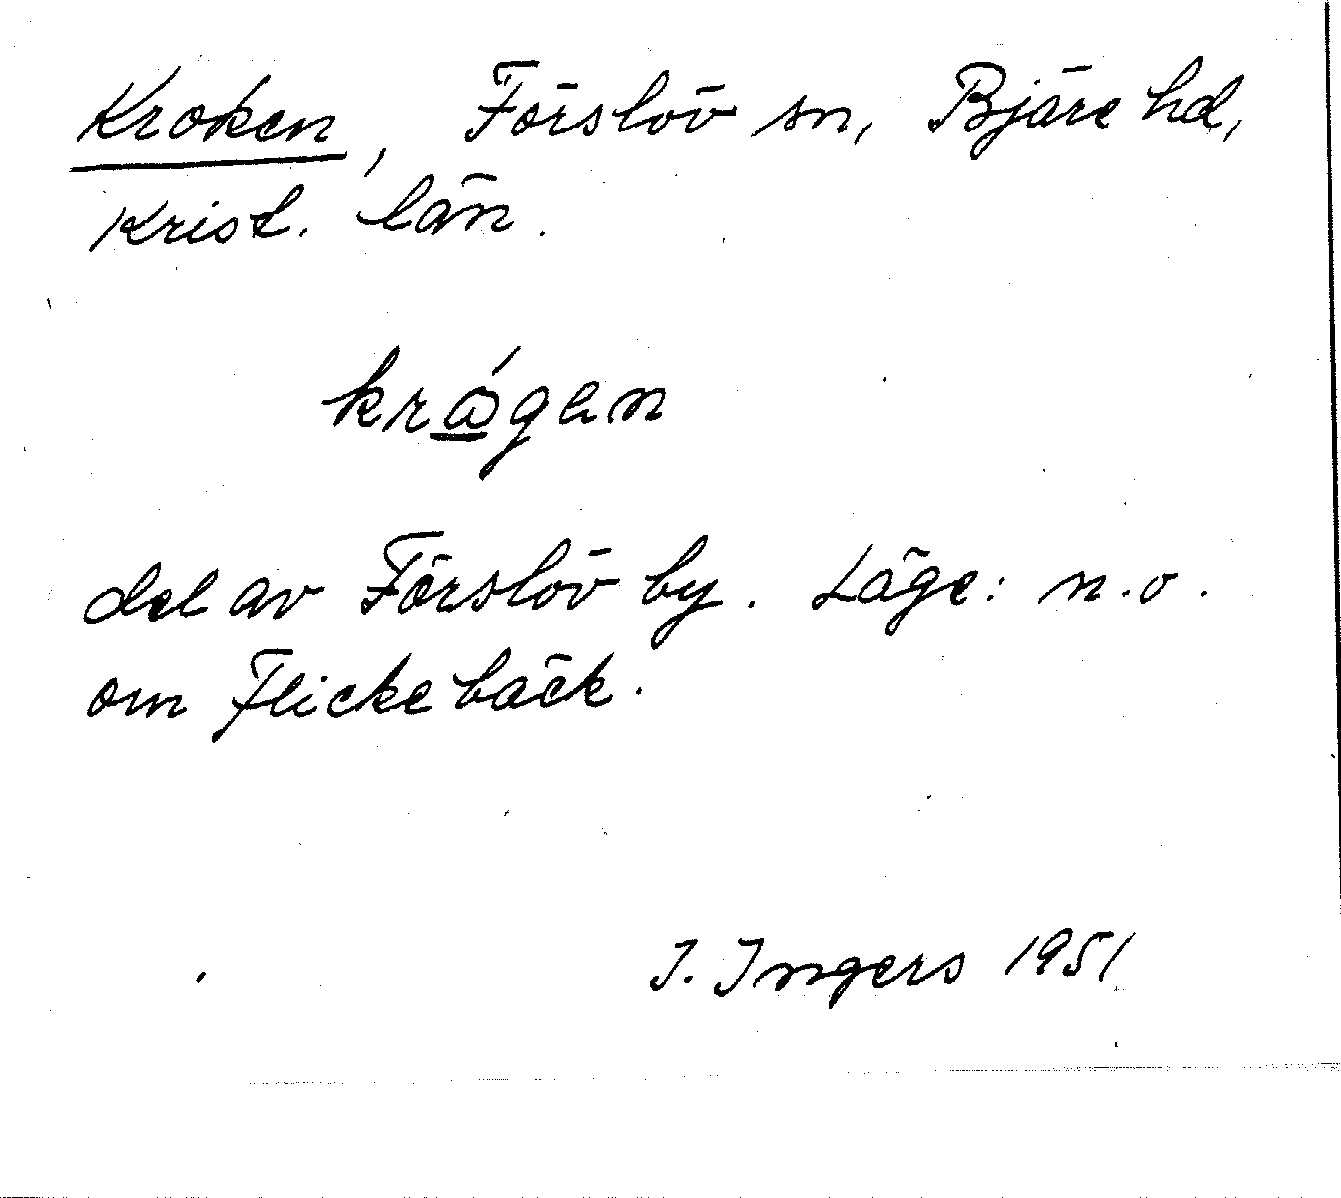 Kroken, Förslöv sn, Bjäre hd,
Krist. län.
krǫ́gen
del av Förslöv by. Läge: n.o.
om Flickebäck.
I. Ingers 1951